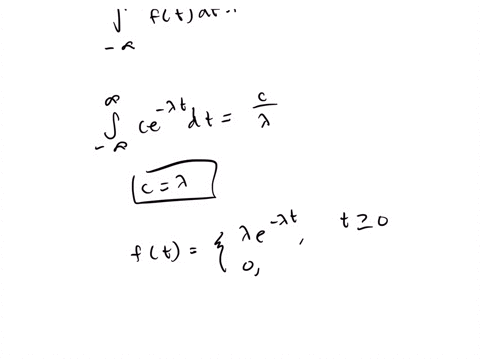 ∫_{-∞} f(t)dt=1
∫_{-∞}^{∞} ce^{-λt}dt = c/λ
c = λ
f(t) = { λe^{-λt}, t ≥ 0
0,